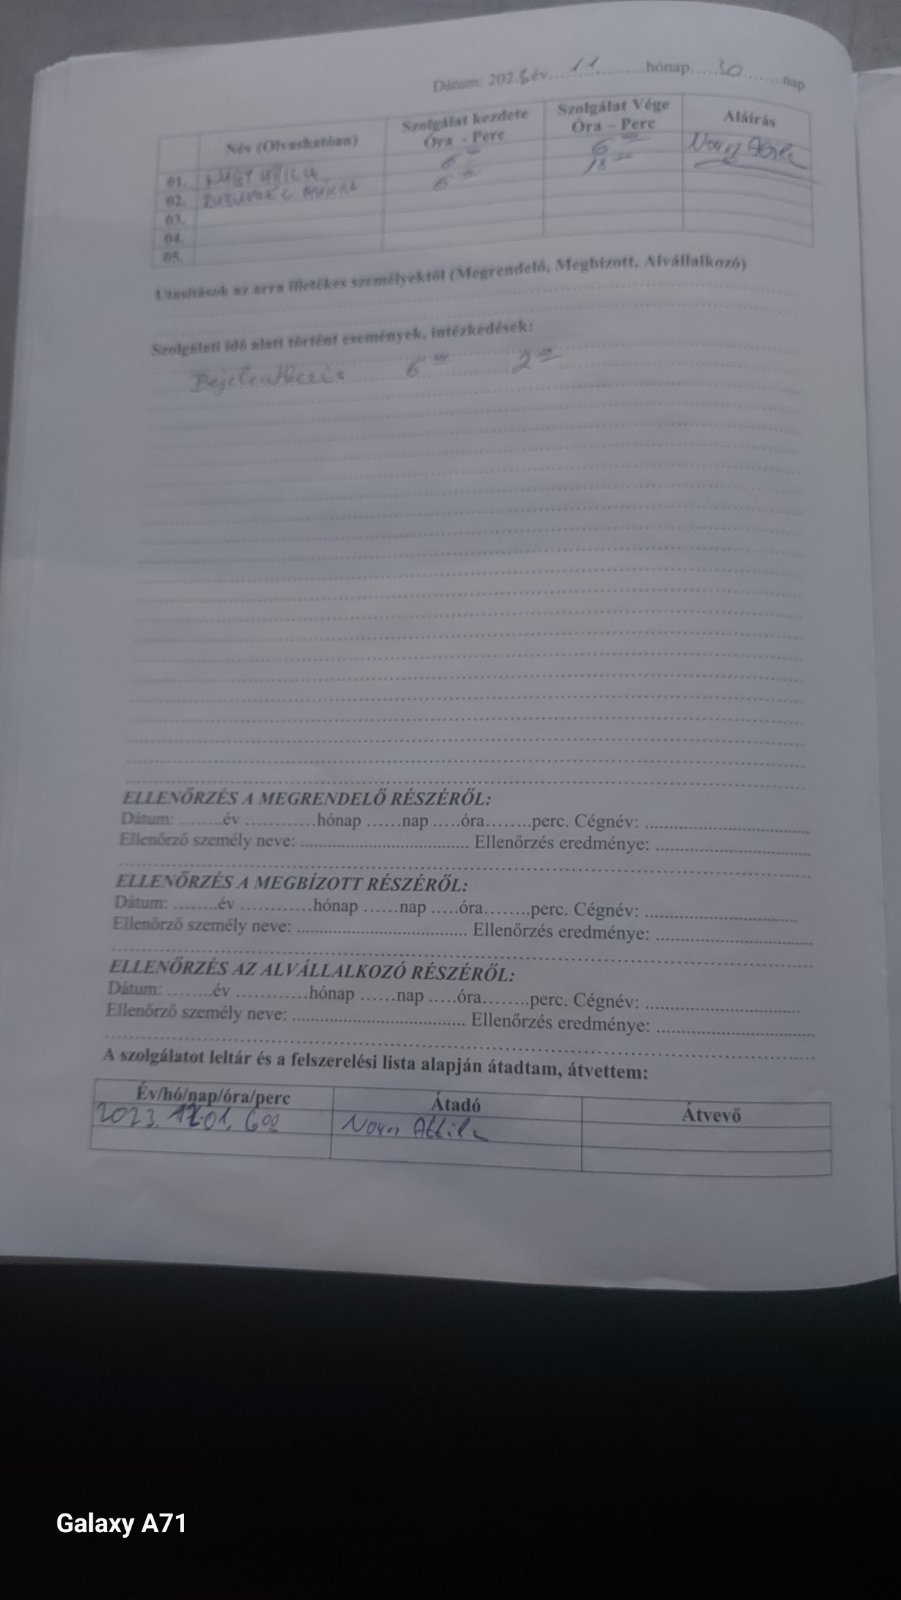 Dátum: 2023 év 11 hónap 30 nap
Név (Olvashatóan) Szolgálat kezdete Óra - Perc Szolgálat Vége Óra - Perc Aláírás
01. NAGY ATTILA 6 00 6 00 Nagy Attila
02. 6 00 18 00
03.
04.
05.
Utasítások az arra illetékes személyektől (Megrendelő, Megbízott, Alvállalkozó)
Szolgálati idő alatt történt események, intézkedések:
Bejelentkezés 6 00 2 00
ELLENŐRZÉS A MEGRENDELŐ RÉSZÉRŐL:
Dátum: ........év ............hónap ......nap .....óra........perc. Cégnév: ..................................
Ellenőrző személy neve: .................................... Ellenőrzés eredménye: ..................................
ELLENŐRZÉS A MEGBÍZOTT RÉSZÉRŐL:
Dátum: ........év ............hónap ......nap .....óra........perc. Cégnév: ..................................
Ellenőrző személy neve: .................................... Ellenőrzés eredménye: ..................................
ELLENŐRZÉS AZ ALVÁLLALKOZÓ RÉSZÉRŐL:
Dátum: ........év ............hónap ......nap .....óra........perc. Cégnév: ..................................
Ellenőrző személy neve: .................................... Ellenőrzés eredménye: ..................................
A szolgálatot leltár és a felszerelési lista alapján átadtam, átvettem:
Év/hó/nap/óra/perc Átadó Átvevő
2023. 12.01. 6 00 Nagy Attila
Galaxy A71